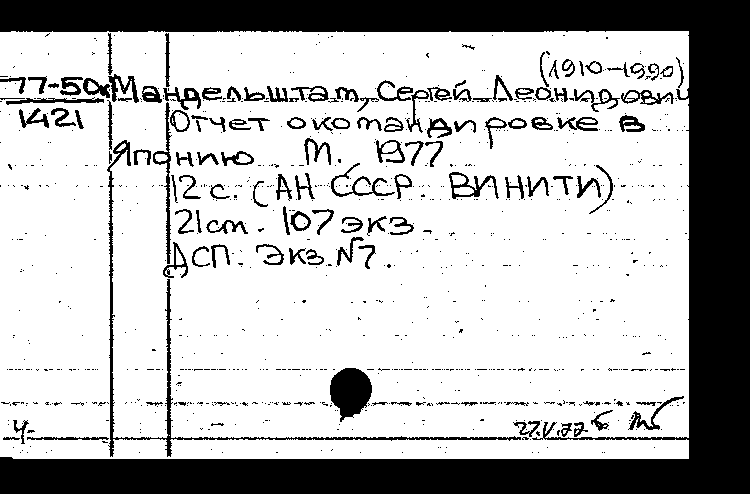 (1910-1990)
77-50к Мандельштам, Сергей Леонидович
1421 Отчет о командировке в
Японию. М. 1977.
12 с. (АН СССР. ВИНИТИ)
21 см. 107 экз.
ДСП. Экз. №7.
4- 27.V.77